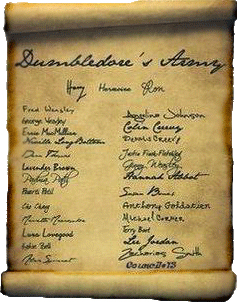 Dumbledore's Army
Harry Hermione Ron
Fred Weasley
George Weasley
Ernie MacMillan
Neville Longbottom
Dean Thomas
Lavender Brown
Parvati Patil
Cho Chang
Luna Lovegood
Katie Bell
Angelina Johnson
Colin Creevey
Dennis Creevey
Justin Finch-Fletchley
Ginny Weasley
Hannah Abbot
Susan Bones
Anthony Goldstien
Michael Corner
Terry Boot
Lee Jordan
Zacharias Smith